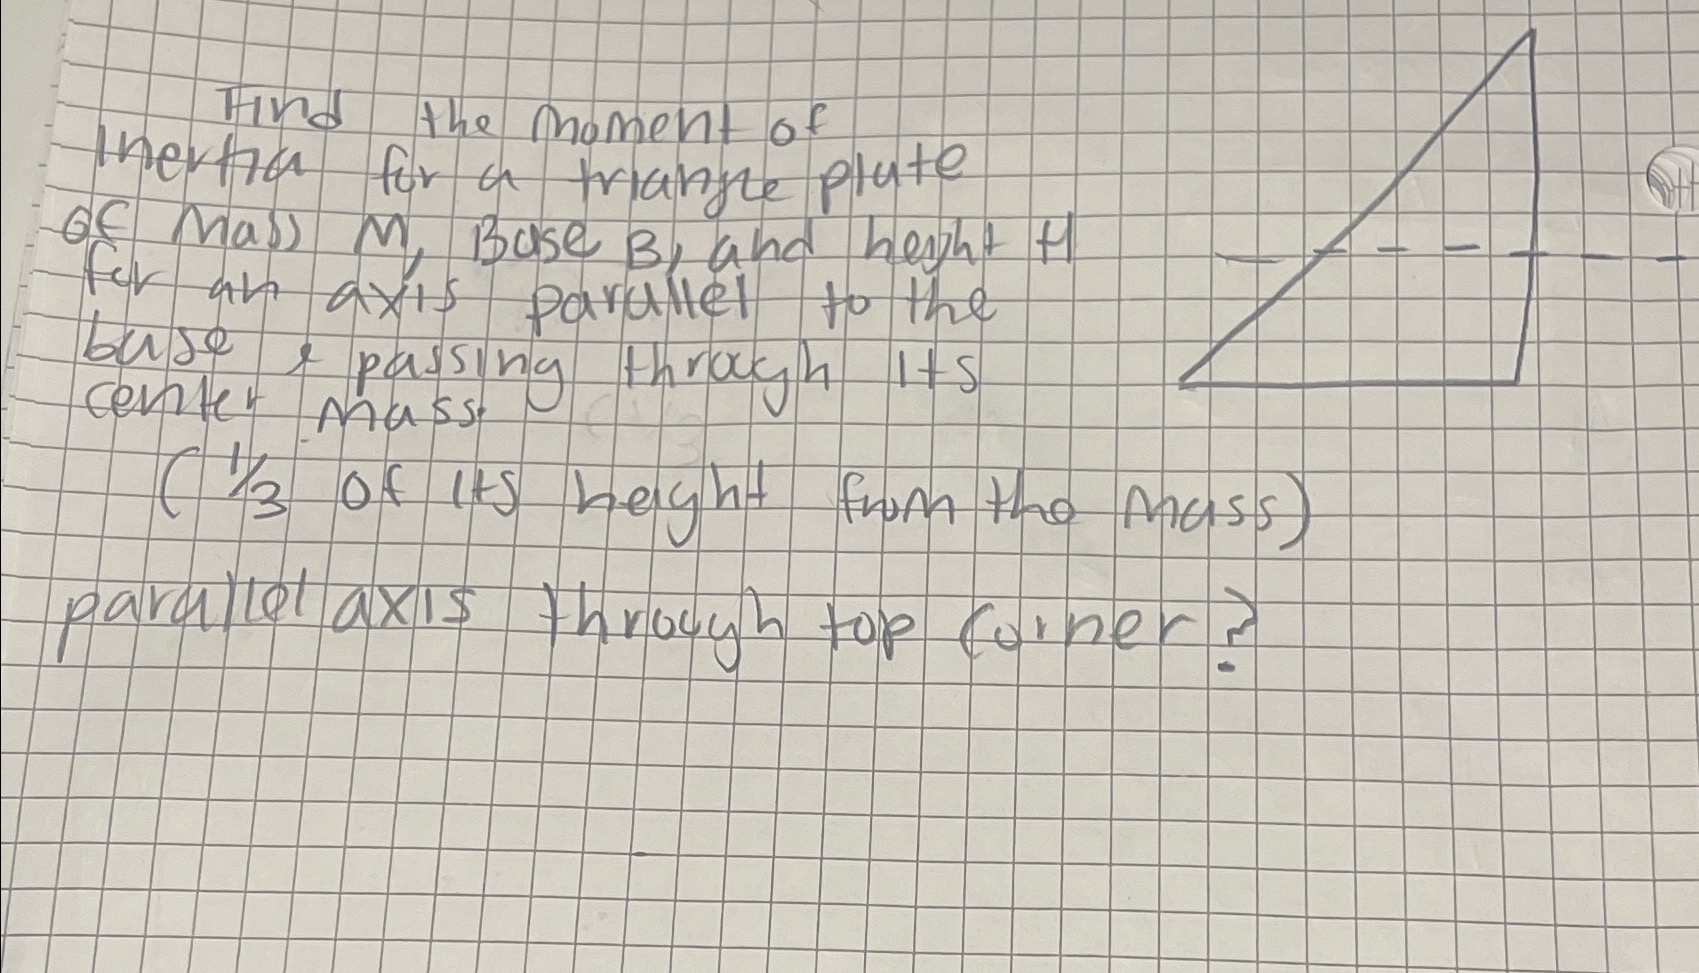 Find the moment of
Inertia for a triangle plate
of Mass M, Base B, and height H
for an axis parallel to the
base & passing through its
center mass.
(1/3 of its height from the mass)
parallel axis through top corner?